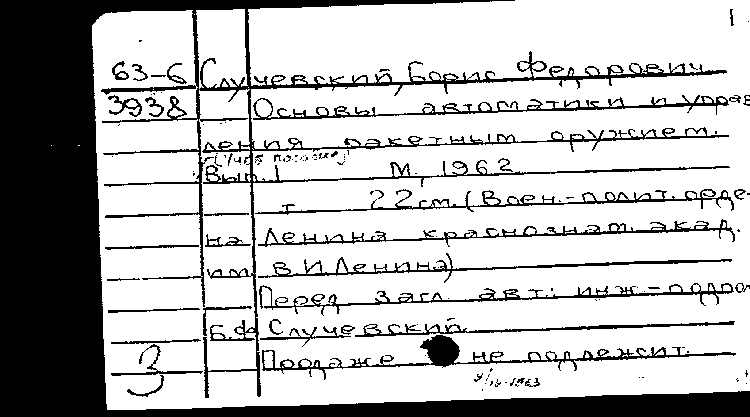 63-6 Случевский, Борис Федорович
3938 Основы автоматики и управ
ления ракетным оружием.
[Учеб. пособие]
Вып. 1 М., 1962
т 22 см. (Воен.-полит. орде-
на Ленина краснознам. акад.
им. В.И. Ленина)
Перед загл. авт.: инж.-подпол
Б.Ф. Случевский.
Продаже не подлежит.
3